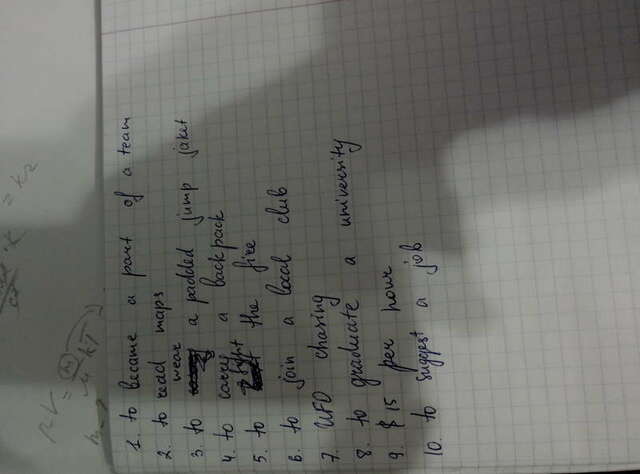 1. to became a part of a team
2. to read maps
3. to wear a padded jump jaket
4. to carry a backpack
5. to fight the fire
6. to join a local club
7. UFO chasing
8. to graduate a university
9. $ 15 per hour
10. to suggest a job